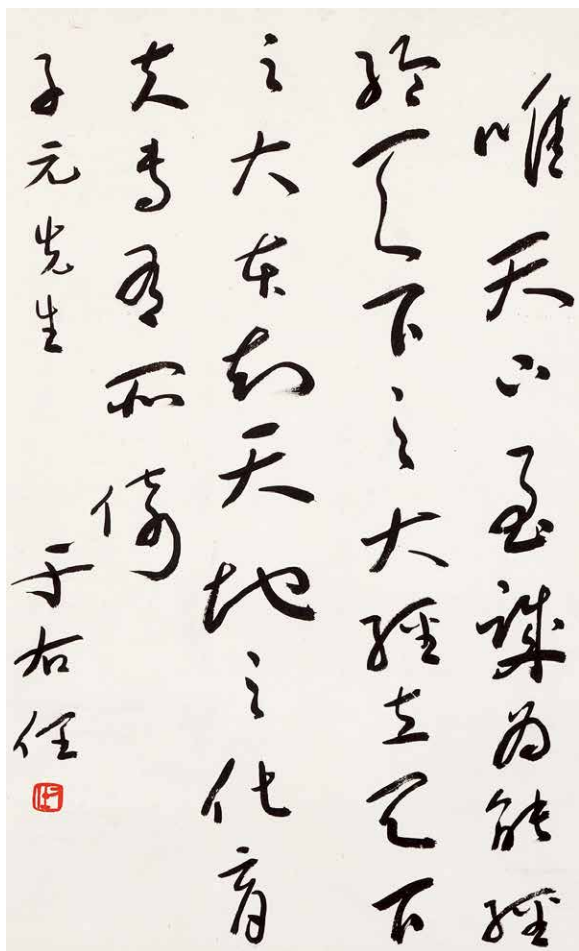 唯天下至誠為能經
綸天下之大經立天下
之大本知天地之化育
夫焉有所倚
子元先生
于右任